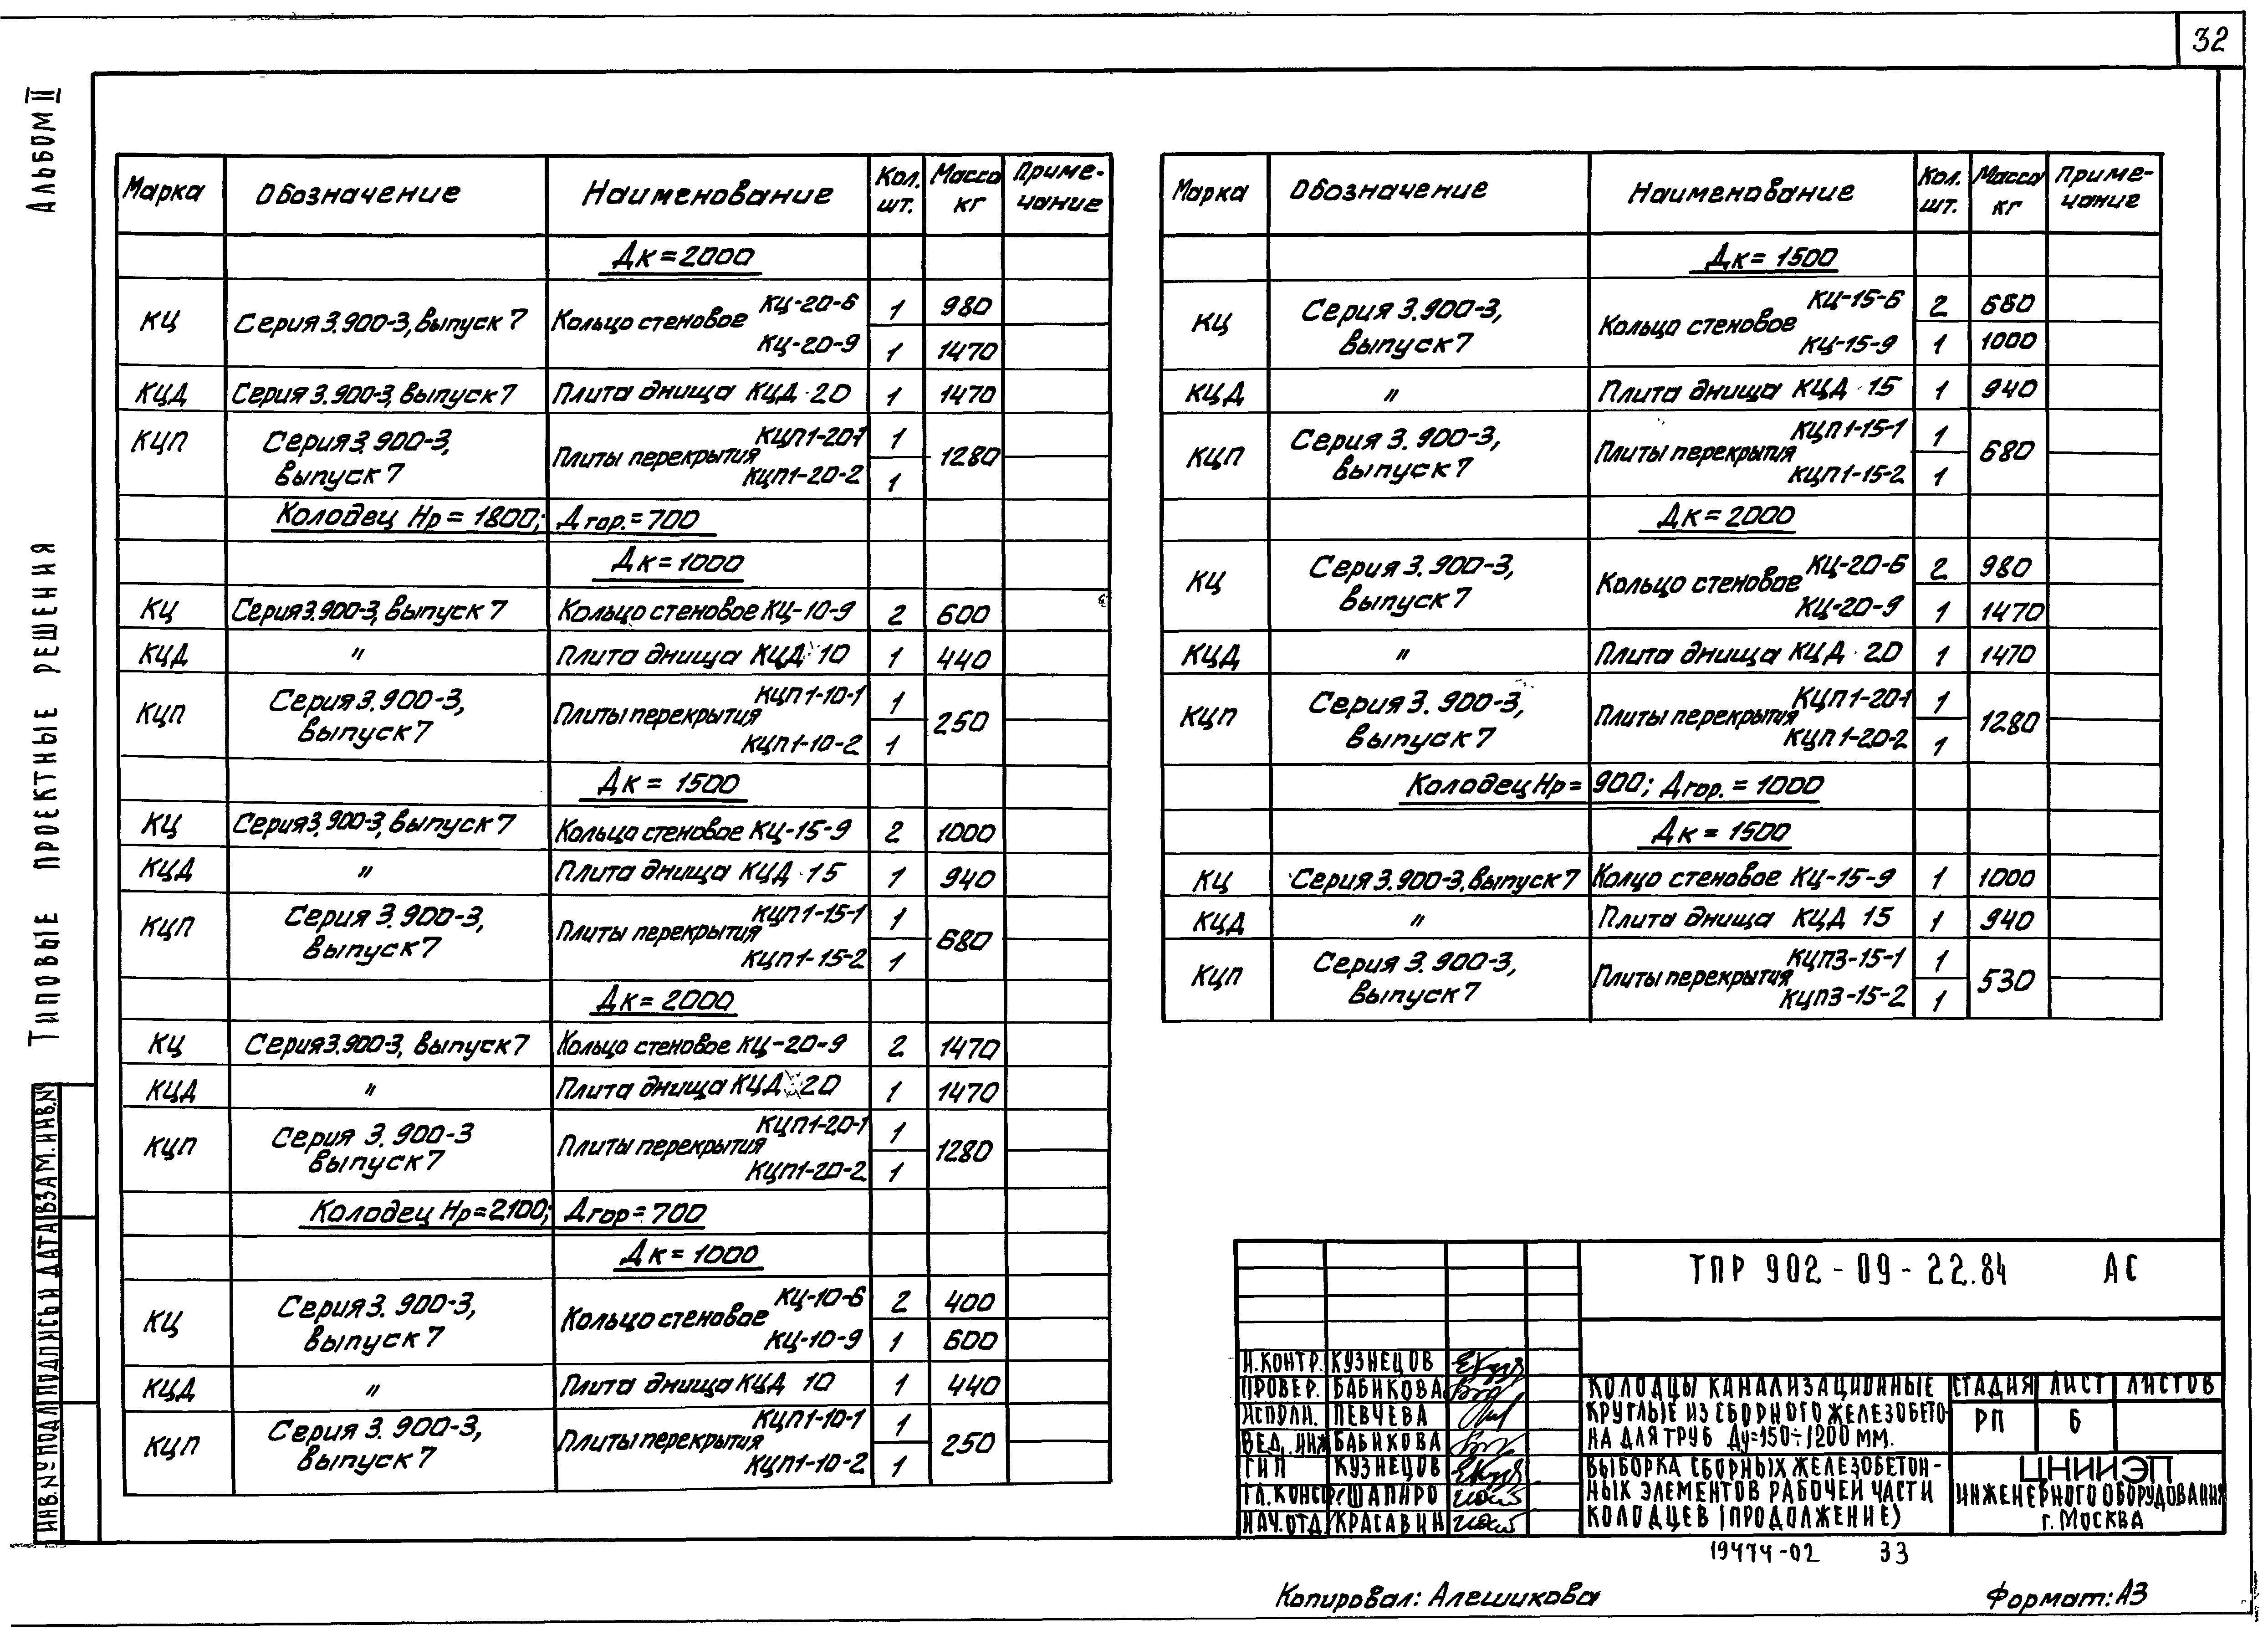 32
Альбом II
Типовые проектные решения
Инв.№ подл. Подписи и дата Взам.инв.№
Марка Обозначение Наименование Кол. шт. Масса кг Примечание
Дк=2000
КЦ Серия 3.900-3, выпуск 7 Кольцо стеновое КЦ-20-6 1 980
КЦ-20-9 1 1470
КЦД Серия 3.900-3, выпуск 7 Плита днища КЦД 20 1 1470
КЦП Серия 3.900-3, выпуск 7 Плиты перекрытия КЦП1-20-1 1 1280
КЦП1-20-2 1
Колодец Нр=1800; Дгор.=700
Дк=1000
КЦ Серия 3.900-3, выпуск 7 Кольцо стеновое КЦ-10-9 2 600
КЦД " Плита днища КЦД 10 1 440
КЦП Серия 3.900-3, выпуск 7 Плиты перекрытия КЦП1-10-1 1 250
КЦП1-10-2 1
Дк=1500
КЦ Серия 3.900-3, выпуск 7 Кольцо стеновое КЦ-15-9 2 1000
КЦД " Плита днища КЦД 15 1 940
КЦП Серия 3.900-3, выпуск 7 Плиты перекрытия КЦП1-15-1 1 680
КЦП1-15-2 1
Дк=2000
КЦ Серия 3.900-3, выпуск 7 Кольцо стеновое КЦ-20-9 2 1470
КЦД " Плита днища КЦД 20 1 1470
КЦП Серия 3.900-3 выпуск 7 Плиты перекрытия КЦП1-20-1 1 1280
КЦП1-20-2 1
Колодец Нр=2100; Дгор=700
Дк=1000
КЦ Серия 3.900-3, выпуск 7 Кольцо стеновое КЦ-10-6 2 400
КЦ-10-9 1 600
КЦД " Плита днища КЦД 10 1 440
КЦП Серия 3.900-3, выпуск 7 Плиты перекрытия КЦП1-10-1 1 250
КЦП1-10-2 1
Марка Обозначение Наименование Кол. шт. Масса кг Примечание
Дк=1500
КЦ Серия 3.900-3, выпуск 7 Кольцо стеновое КЦ-15-6 2 680
КЦ-15-9 1 1000
КЦД " Плита днища КЦД 15 1 940
КЦП Серия 3.900-3, выпуск 7 Плиты перекрытия КЦП1-15-1 1 680
КЦП1-15-2 1
Дк=2000
КЦ Серия 3.900-3, выпуск 7 Кольцо стеновое КЦ-20-6 2 980
КЦ-20-9 1 1470
КЦД " Плита днища КЦД 20 1 1470
КЦП Серия 3.900-3, выпуск 7 Плиты перекрытия КЦП1-20-1 1 1280
КЦП1-20-2 1
Колодец Нр=900; Дгор.=1000
Дк=1500
КЦ Серия 3.900-3, выпуск 7 Колцо стеновое КЦ-15-9 1 1000
КЦД " Плита днища КЦД 15 1 940
КЦП Серия 3.900-3, выпуск 7 Плиты перекрытия КЦП3-15-1 1 530
КЦП3-15-2 1
ТПР 902-09-22.84 АС
Н.контр. Кузнецов
Провер. Бабикова
Исполн. Певчева
Вед. инж Бабикова
ГИП Кузнецов
Гл.констр. Шапиро
Нач.отд. Красавин
Колодцы канализационные
круглые из сборного железобето-
на для труб Ду=150÷1200 мм.
Выборка сборных железобетон-
ных элементов рабочей части
колодцев (продолжение)
Стадия Лист Листов
РП 6
ЦНИИЭП
инженерного оборудования
г. Москва
19474-02 33
Копировал: Алешикова Формат: А3